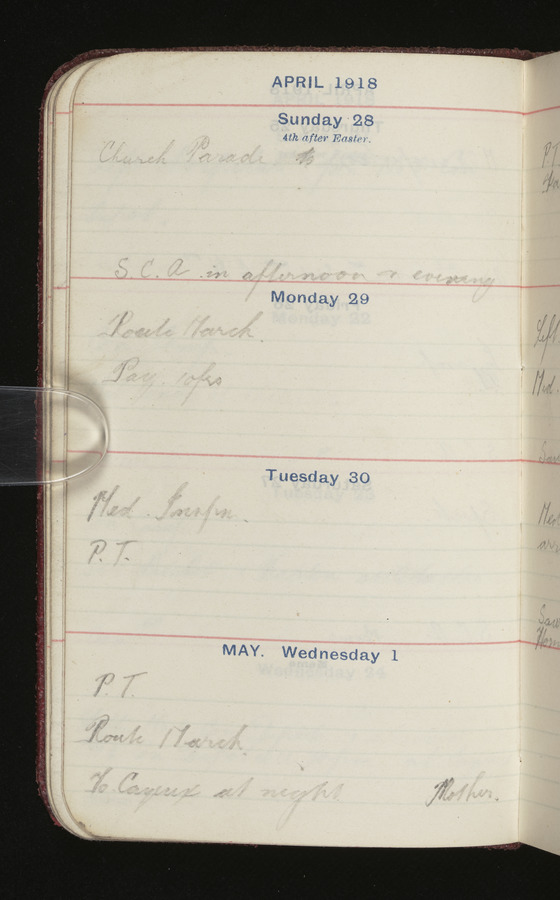 APRIL 1918
Sunday 28
4th after Easter.
Church Parade
S. C. A. in afternoon & evening
Monday 29
Route March.
Pay.
Tuesday 30
Med. Inspn.
P. T.
MAY. Wednesday 1
P. T.
Route March.
To Cayeux at night Mother.